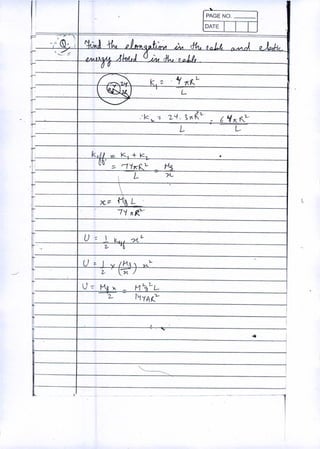 PAGE NO.
DATE
Q: Find the elongation in the cable and elastic
energy stored in the cable.
2Y
Y
K₁ = YπR²/L
K₂ = 2Y.3πR²/L = 6YπR²/L
Keff = K₁ + K₂
= 7YπR²/L = Mg/x
x = MgL/7YπR²
U = 1/2 Keff x²
U = 1/2 × (Mg/x) x²
U = Mgx/2 = M²g²L/14YAR²